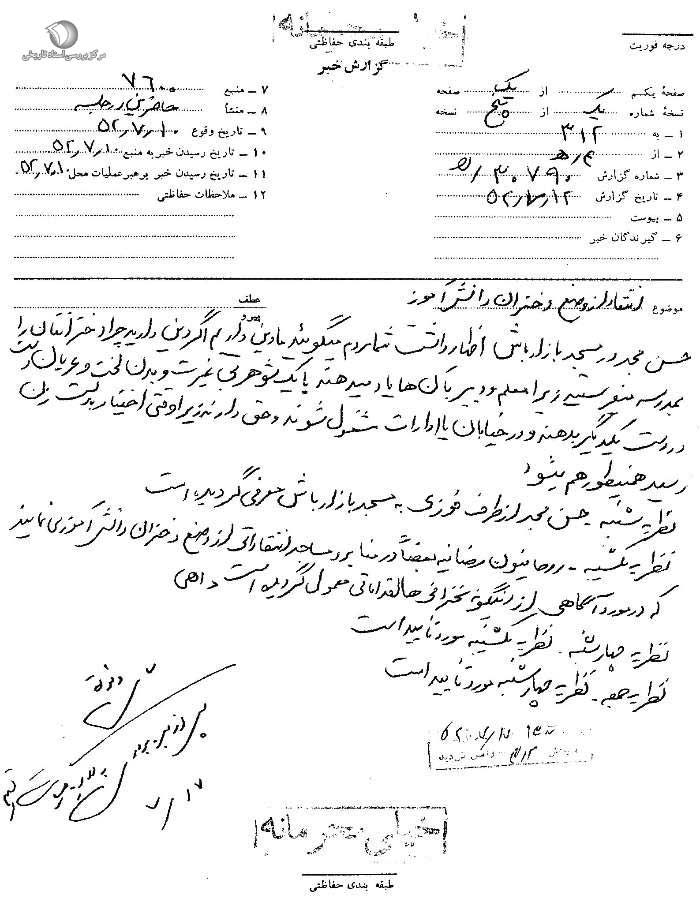 مرکز بررسی اسناد تاریخی
طبقه بندی حفاظتی
گزارش خبر
درجه فوریت
صفحهٔ یکم از یک صفحه
نسخهٔ شماره یک از پنج نسخه
۱ - به ۳۱۲
۲ - از
۳ - شماره گزارش
۴ - تاریخ گزارش
۵ - پیوست
۶ - گیرندگان خبر
۷ - منبع ۷۶۰۰
۸ - منشأ حاضرین در جلسه
۹ - تاریخ وقوع ۵۲٫۷٫۱۰
۱۰ - تاریخ رسیدن خبر به منبع ۵۲٫۷٫۱۰
۱۱ - تاریخ رسیدن خبر برهبر عملیات محل ۵۲٫۷٫۱۰
۱۲ - ملاحظات حفاظتی
موضوع انتقاد از وضع دختران دانش آموز
عطف
پیرو
حسن مجد در مسجد بازارباش اظهار داشت شما مردم میگوئید ما دین داریم اگر دین دارید چرا دخترانتان را
بمدرسه میفرستید زیرا معلم و دبیر بآن‌ها یاد میدهند با یک شوهر بی غیرت و بدن لخت و عریان دست
در دست یکدیگر بدهند و در خیابان یا ادارات مشغول شوند و حق دارند زیرا وقتی اختیار بدست زن
رسید همینطور هم میشود
نظریه شنبه. حسن مجد از طرف فوزی به مسجد بازارباش معرفی گردیده است
نظریه یکشنبه - روحانیون رضائیه بعضاً در منابر و مساجد انتقاداتی از وضع دختران دانش آموز می نمایند
که در مورد آگاهی از اینگونه سخنرانی ها اقداماتی معمول گردیده است
نظریه چهارشنبه. نظریه یکشنبه مورد تایید است
نظریه جمعه. نظریه چهارشنبه مورد تایید است
۷/۱۷
خیلی محرمانه
طبقه بندی حفاظتی